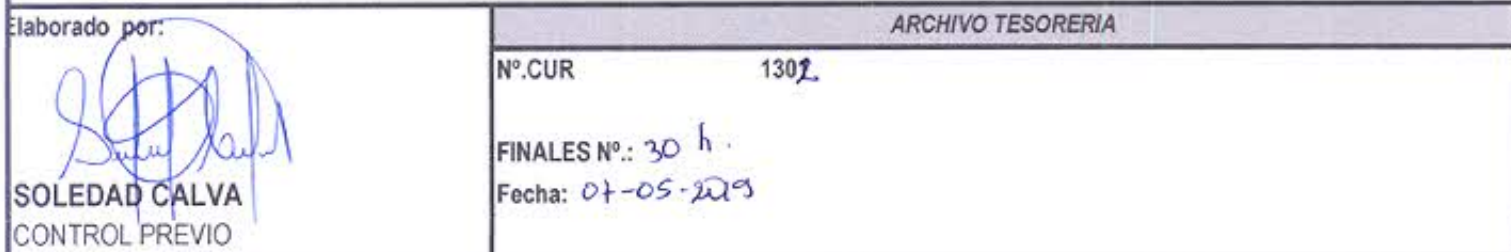 Elaborado por:
SOLEDAD CALVA
CONTROL PREVIO
ARCHIVO TESORERIA
Nº.CUR 1302
FINALES Nº.: 30 h.
Fecha: 07-05-2019